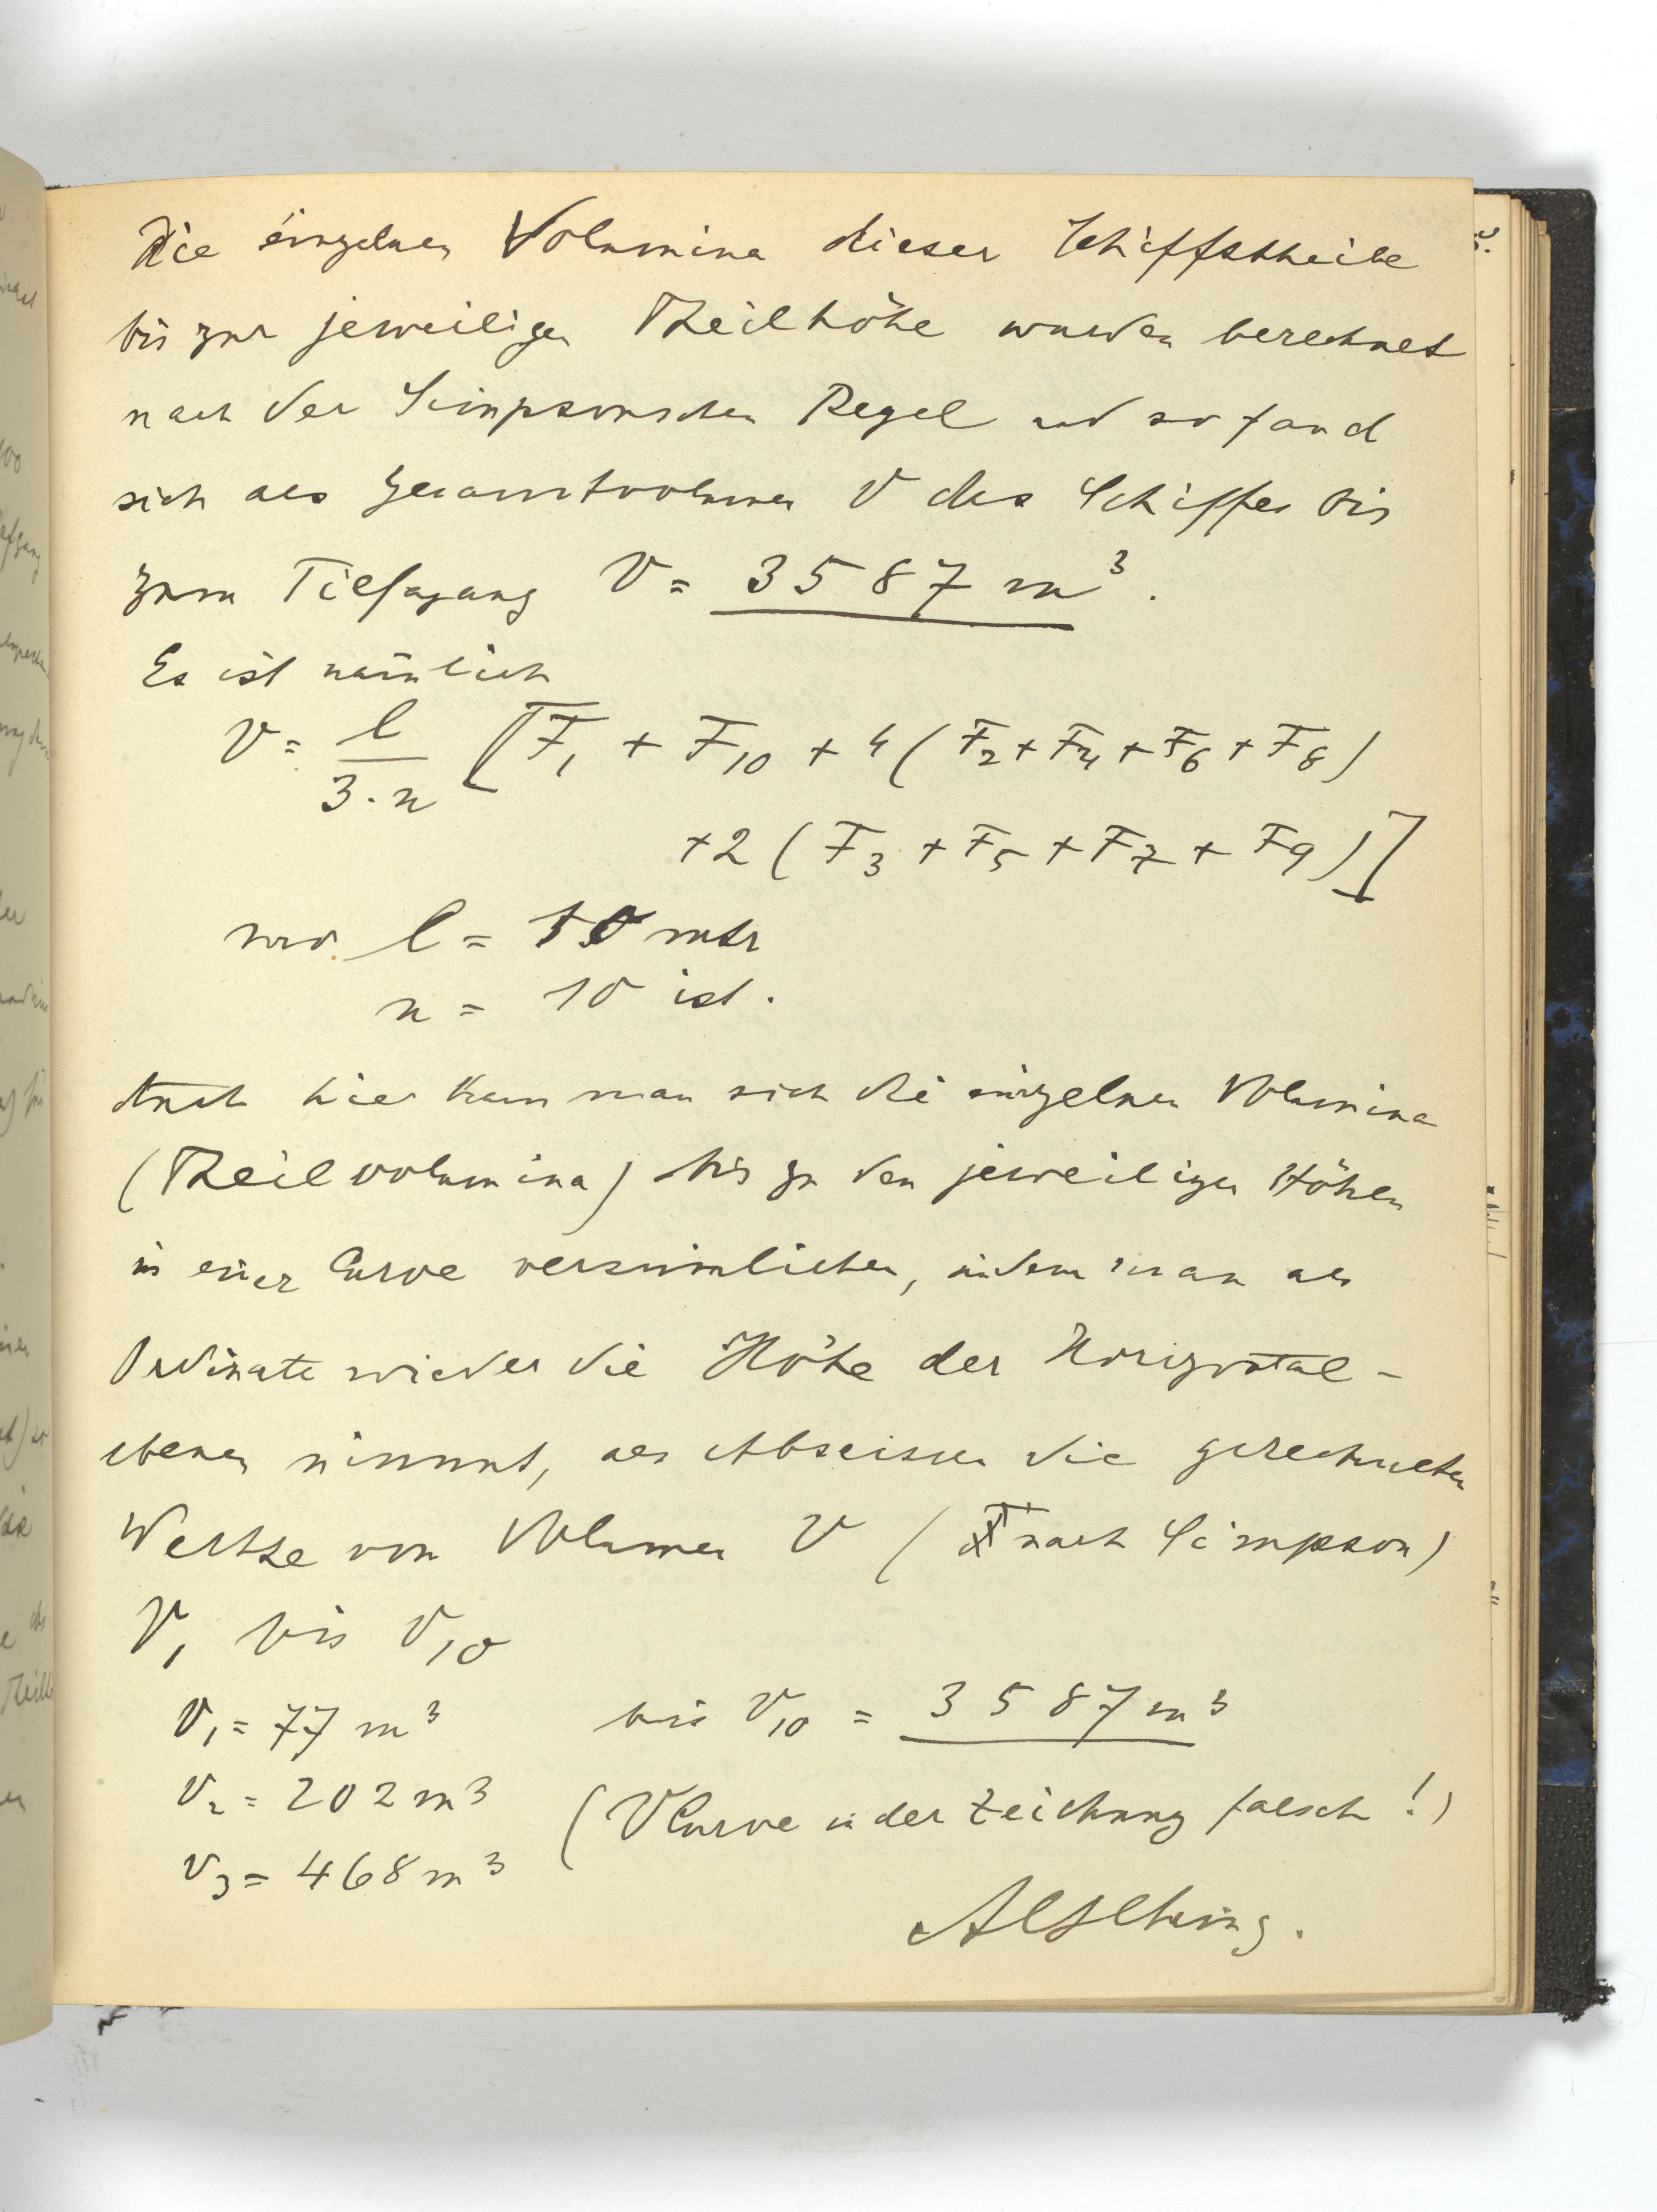 Die einzelnen Volumina dieser Schiffstheile
bis zur jeweiligen Theilhöhe wurden berechnet
nach der Simpsonschen Regel und so fand
sich als Gesamtvolumen V des Schiffes bis
zum Tiefgang V = 3587 m³.
Es ist nämlich
V = l / 3·n [F₁ + F₁₀ + 4 (F₂ + F₄ + F₆ + F₈)
+ 2 (F₃ + F₅ + F₇ + F₉)]
wo l = mtr
n = 10 ist.
Auch hier kann man sich die einzelnen Volumina
(Theilvolumina) bis zu den jeweiligen Höhen
in einer Curve versinnlichen, indem man als
Ordinate wieder die Höhe der Horizontal-
ebenen nimmt, als Abscissen die gerechneten
Werthe von Volumen V ( nach Simpson)
V₁ bis V₁₀
V₁ = 77 m³ bis V₁₀ = 3587 m³
V₂ = 202 m³ (V Curve in der Zeichnung falsch!)
V₃ = 468 m³